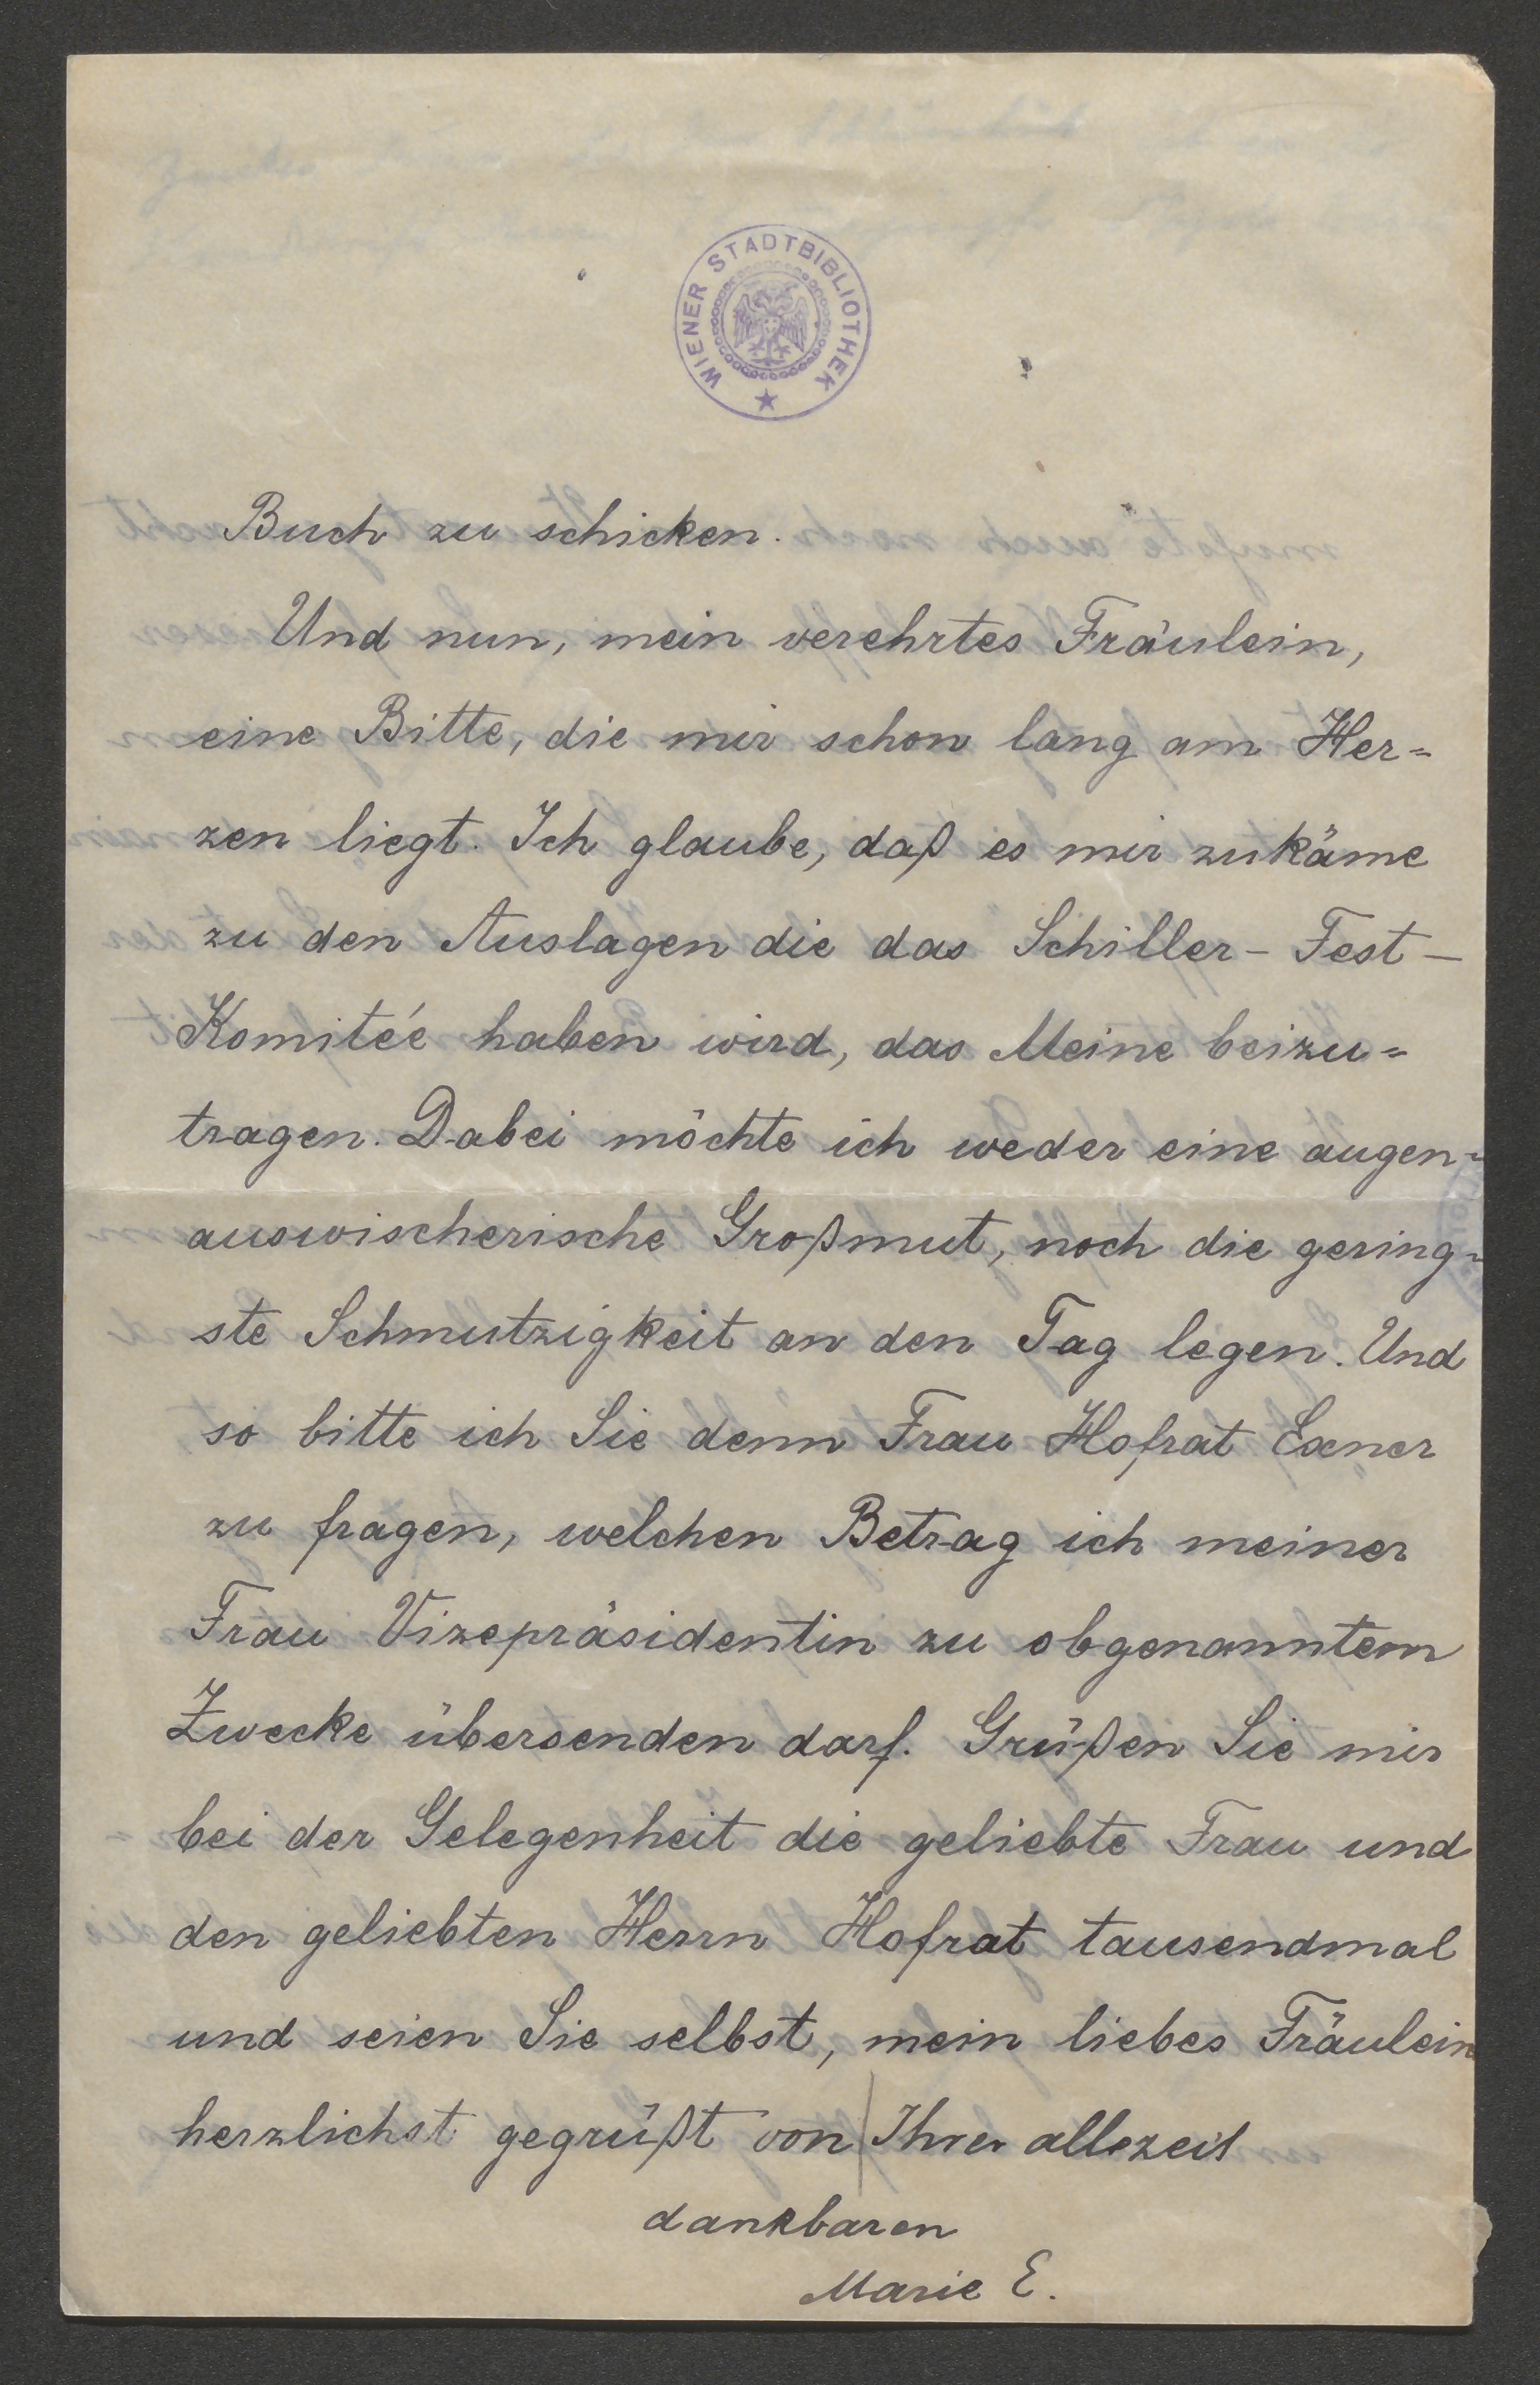 WIENER STADTBIBLIOTHEK
Buch zu schicken.
Und nun, mein verehrtes Fräulein,
eine Bitte, die mir schon lang am Her=
zen liegt. Ich glaube, daß es mir zukäme
zu den Auslagen die das Schiller-Fest-
Komitée haben wird, das Meine beizu=
tragen. Dabei möchte ich weder eine augen=
auswischerische Großmut, noch die gering=
ste Schmutzigkeit an den Tag legen. Und
so bitte ich Sie denn Frau Hofrat Exner
zu fragen, welchen Betrag ich meiner
Frau Vizepräsidentin zu obgenanntem
Zwecke übersenden darf. Grüßen Sie mir
bei der Gelegenheit die geliebte Frau und
den geliebten Herrn Hofrat tausendmal
und seien Sie selbst, mein liebes Fräulein
herzlichst gegrüßt von Ihrer allezeit
dankbaren
Marie E.